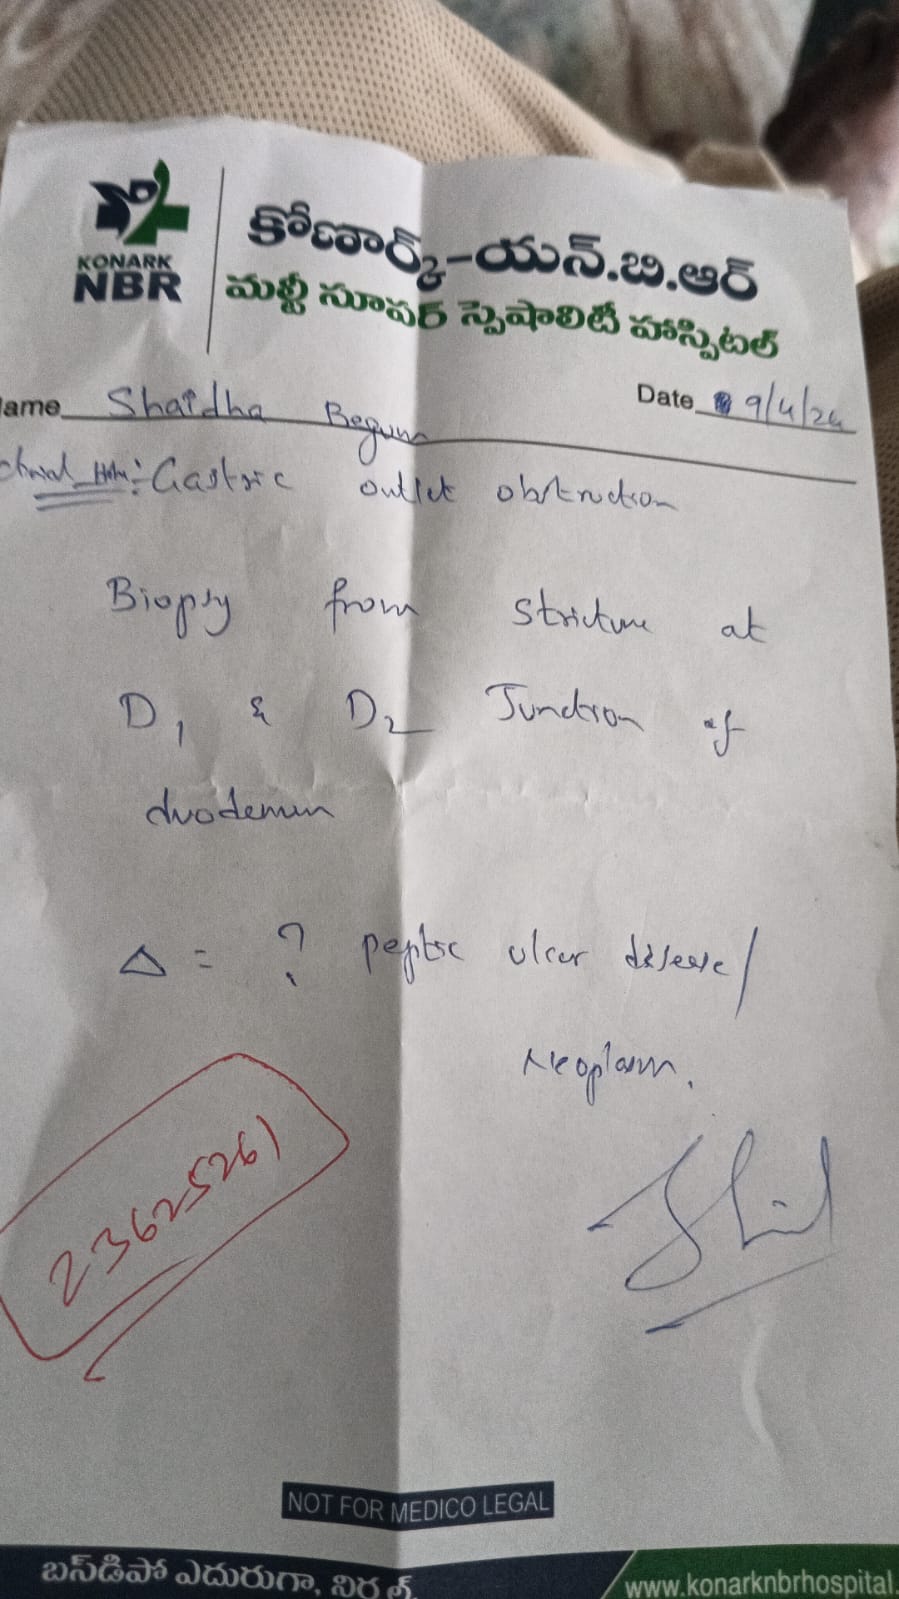 KONARK
NBR
కోణార్క్-యన్.బి.ఆర్
మల్టీ సూపర్ స్పెషాలిటీ హాస్పిటల్
ame Shaidha Begum
Date 9/4/24
Gastric outlet obstruction
Biopsy from stricture at
D1 & D2 Junction of
duodenum
Δ = ? peptic ulcer disease/
Neoplasm.
23625261
NOT FOR MEDICO LEGAL
బస్‌డిపో ఎదురుగా, నిర్మల్.
www.konarknbrhospital.